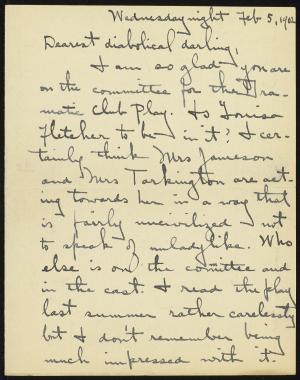 Wednesday night Feb 5, 1902
Dearest diabolical darling,
I am so glad you are
on the committee for the Dra-
matic Club Play. Is Louisa
Fletcher to be in it? I cer-
tainly think Mrs Jameson
and Mrs Tarkington are act-
ing towards her in a way that
is fairly uncivilized not
to speak of unladylike. Who
else is on the comittee and
in the cast. I read the play
last summer rather carelessly
but I don't remember being
much impressed with it.